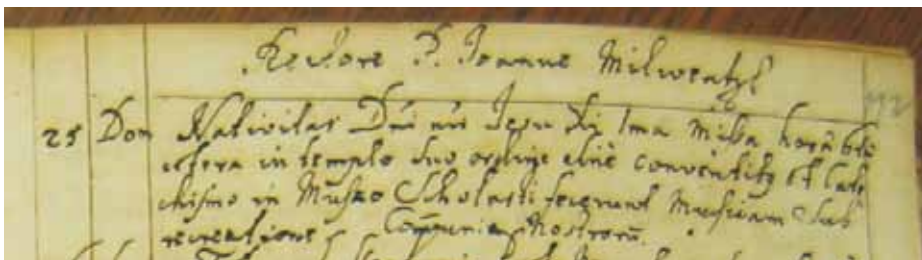 Rectore P. Joanne Milwentyl
25 Dom Nativitas Dni nri Jesu Xi Ima Missa horâ
caetera in templo suo ordine sine conventib9 et Cate
chismo in Musaeo Scholasti fecerunt Musicam sub
recreatione Communi Nostrorum.